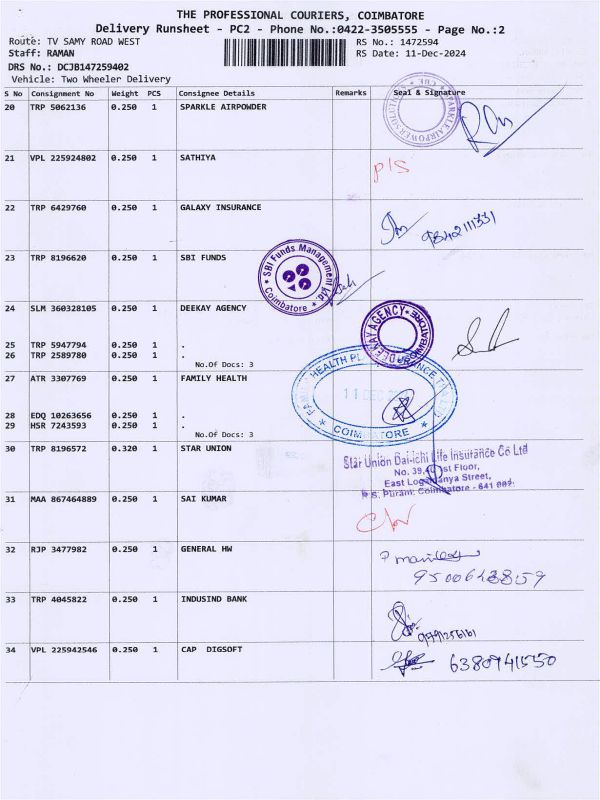 THE PROFESSIONAL COURIERS, COIMBATORE
Delivery Runsheet - PC2 - Phone No.:0422-3505555 - Page No.:2
Route: TV SAMY ROAD WEST RS No.: 1472594
Staff: RAMAN RS Date: 11-Dec-2024
DRS No.: DCJB147259402
Vehicle: Two Wheeler Delivery
S No Consignment No Weight PCS Consignee Details Remarks Seal & Signature
20 TRP 5062136 0.250 1 SPARKLE AIRPOWDER
21 VPL 225924802 0.250 1 SATHIYA P/S
22 TRP 6429760 0.250 1 GALAXY INSURANCE
9842111331
23 TRP 8196620 0.250 1 SBI FUNDS
SBI Funds Management Ltd. Coimbatore
24 SLM 360328105 0.250 1 DEEKAY AGENCY
DEEKAY AGENCY COIMBATORE
25 TRP 5947794 0.250 1 .
26 TRP 2589780 0.250 1 .
No.Of Docs: 3
27 ATR 3307769 0.250 1 FAMILY HEALTH
FAMILY HEALTH
11 DEC
COIMBATORE
28 EDQ 10263656 0.250 1 .
29 HSR 7243593 0.250 1 .
No.Of Docs: 3
30 TRP 8196572 0.320 1 STAR UNION
Star Union Dai-ichi Life Insurance Co Ltd
No. 39, Floor,
East Street,
Puram, Coimbatore - 641
31 MAA 867464889 0.250 1 SAI KUMAR
32 RJP 3477982 0.250 1 GENERAL HW
33 TRP 4045822 0.250 1 INDUSIND BANK
34 VPL 225942546 0.250 1 CAP DIGSOFT
6380941550